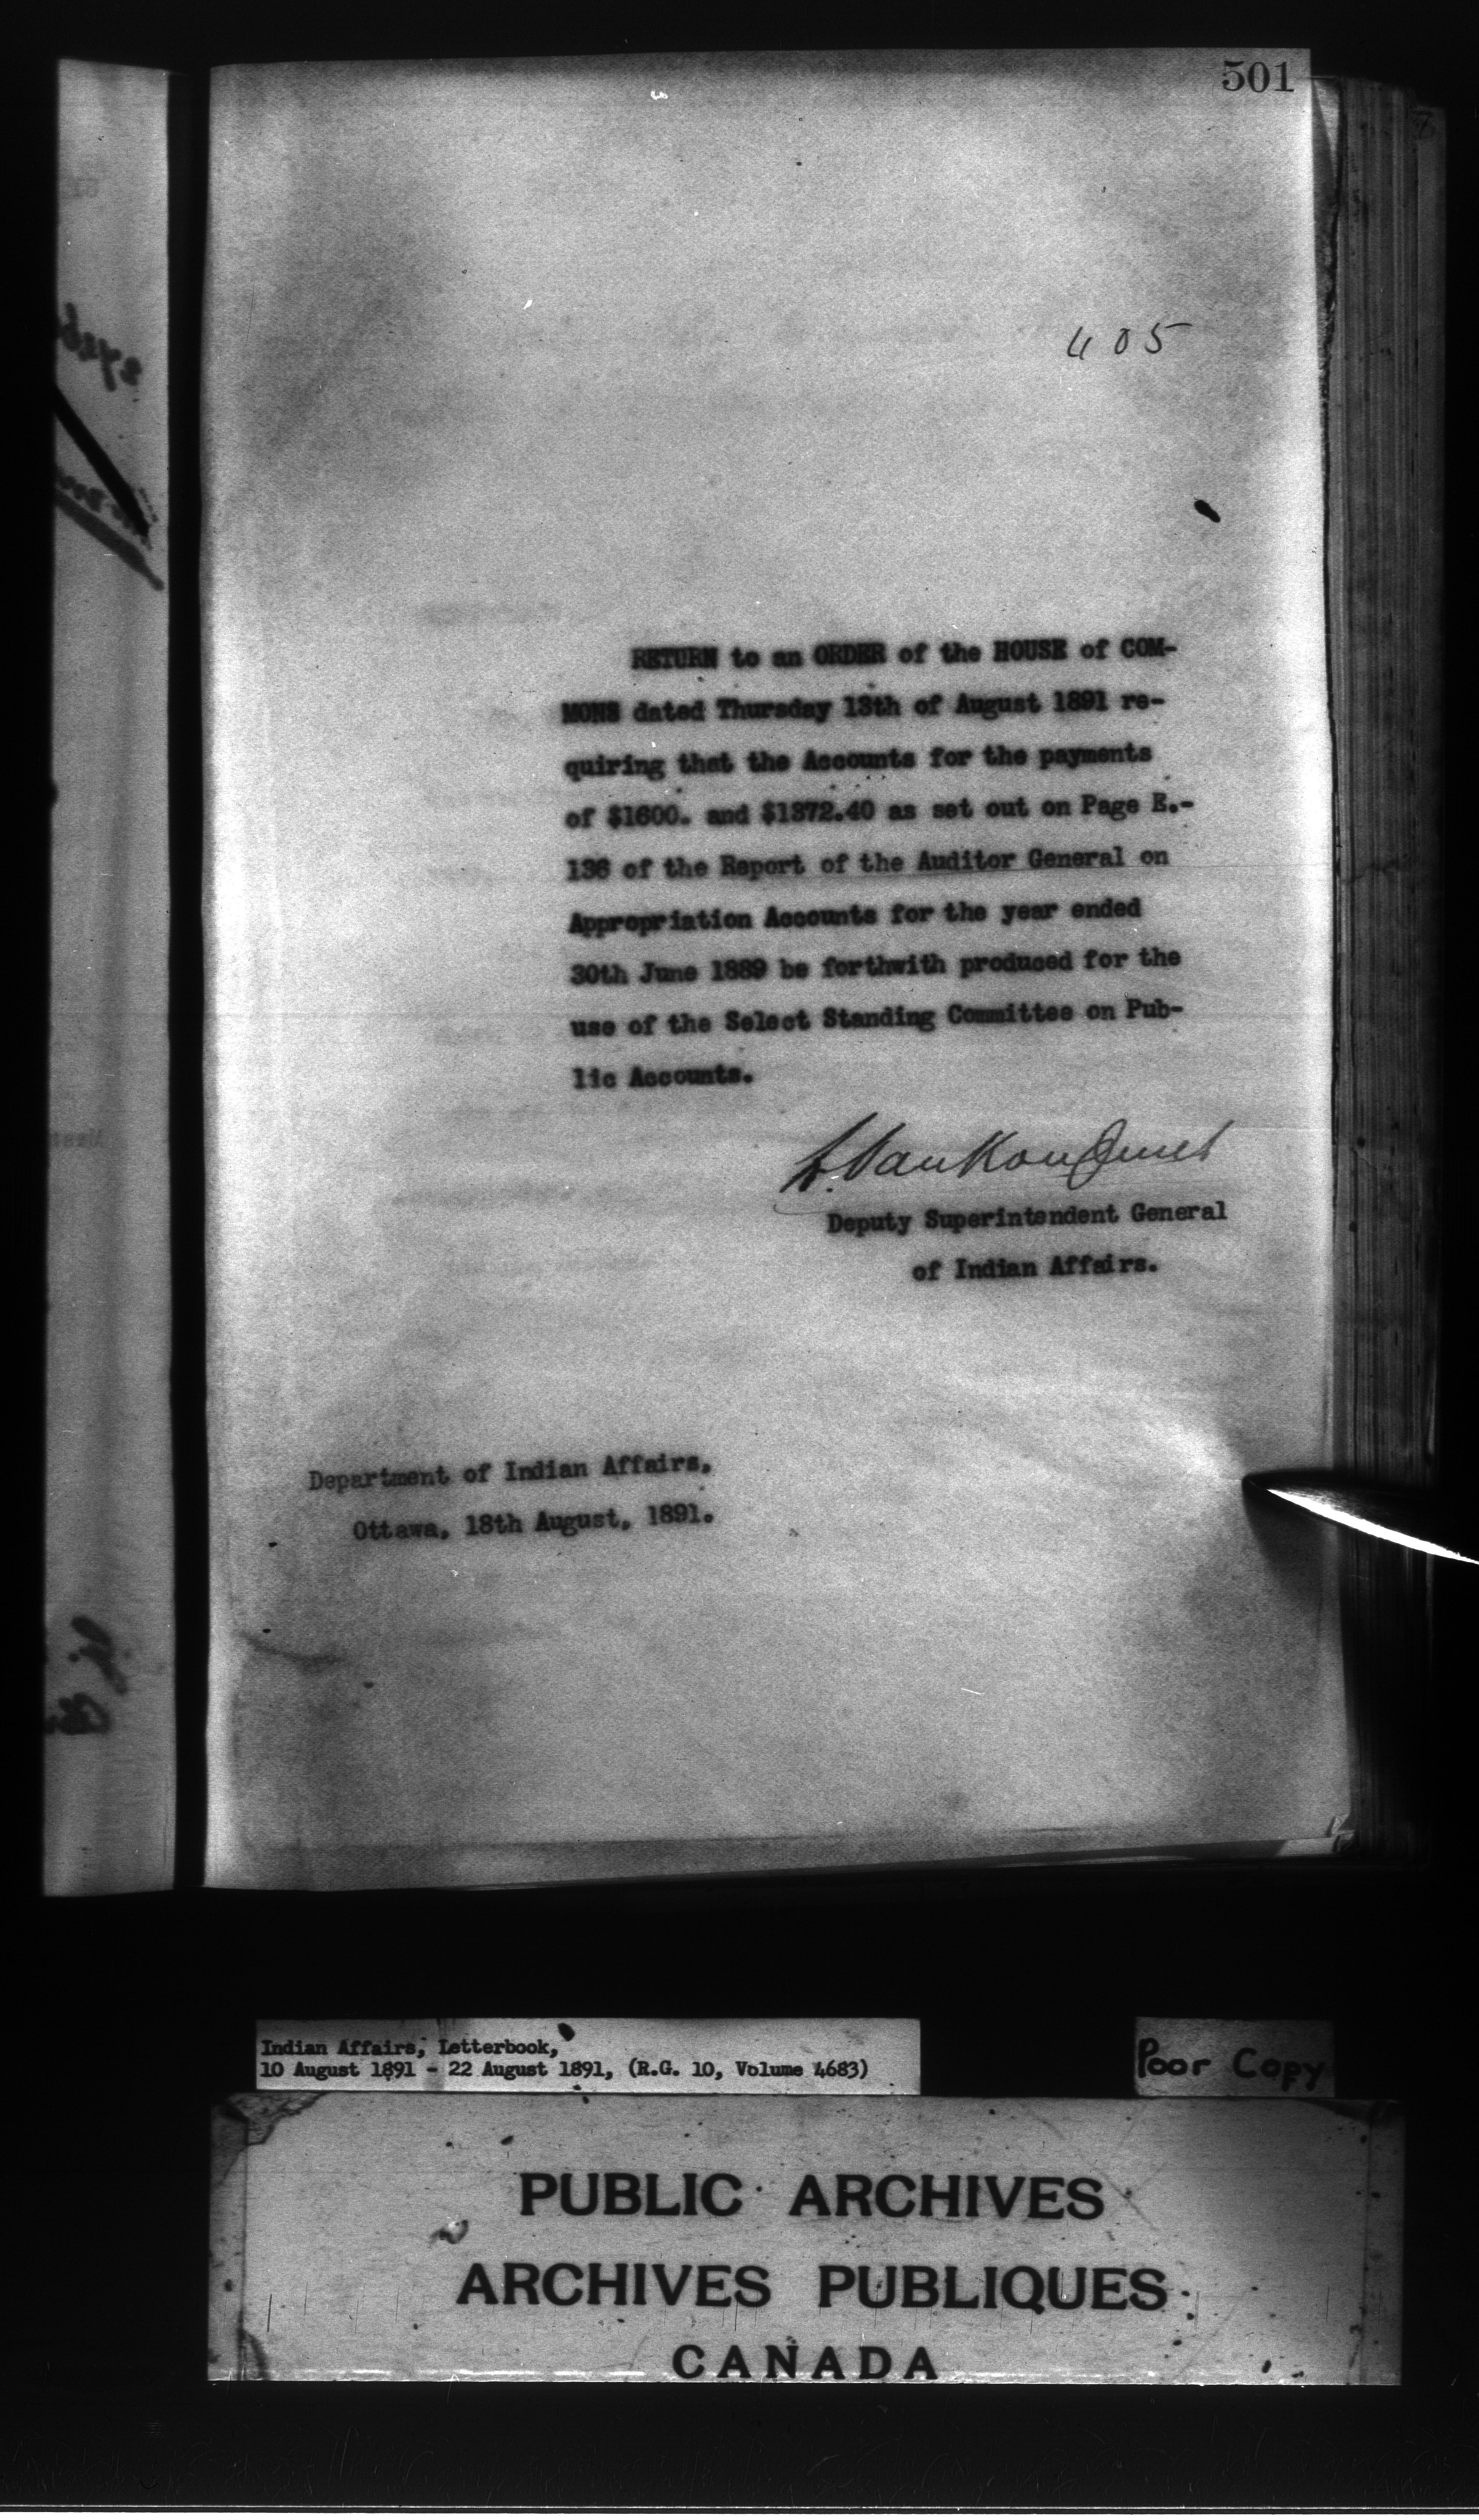 501
405
RETURN to an ORDER of the HOUSE of COM-
MONS dated Thursday 13th of August 1891 re-
quiring that the Accounts for the payments
of $1600. and $1372.40 as set out on Page E.-
136 of the Report of the Auditor General on
Appropriation Accounts for the year ended
30th June 1889 be forthwith produced for the
use of the Select Standing Committee on Pub-
lic Accounts.
L. VanKoughnet
Deputy Superintendent General
of Indian Affairs.
Department of Indian Affairs,
Ottawa, 18th August, 1891.
Indian Affairs, Letterbook,
10 August 1891 - 22 August 1891, (R.G. 10, Volume 4683)
Poor Copy
PUBLIC ARCHIVES
ARCHIVES PUBLIQUES
CANADA